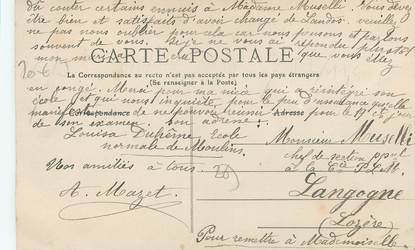 du conter certains ennuis à Madame Muselli. Vous devez
être bien et satisfaits d'avoir changé de Landos. veuillez
ne pas nous oublier pour cela car nous pensons et parlons
souvent de vous. Si je ne vous ai répondu plus tôt
que vous étiez
CARTE POSTALE
La Correspondance au recto n'est pas acceptée par tous les pays étrangers
(Se renseigner à la Poste)
en congé. Moi pour ma nièce qui a réintégré son
école et qui nous inquiète pour le peu d'assurance qu'elle
de ne pouvoir réussir pour le
Correspondance
Adresse
son examen. son adresse :
Louisa Duhême, Ecole
normale de Moulins.
Vos amitiés à tous.
A. Mazet.
20
Monsieur Muselli
chef de section ppal
à la Cie P.L.M.
Langogne
(Lozère)
Pour remettre à Mademoiselle
20 €